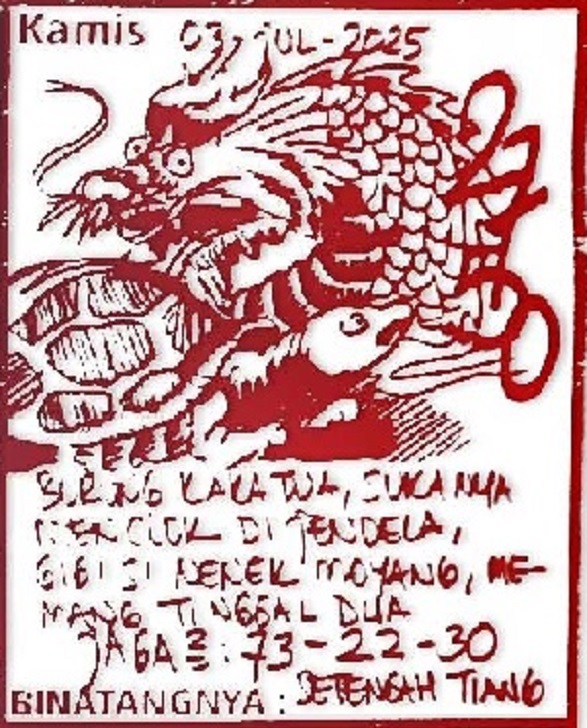 Kamis 03, JUL-2025
BURUNG KAKA TUA, SUKANYA
MENCLOK DI JENDELA,
GIGI SI NENEK MOYANG, ME-
MANG TINGGAL DUA
JAGA²: 73-22-30
BINATANGNYA: SETENGAH TIANG